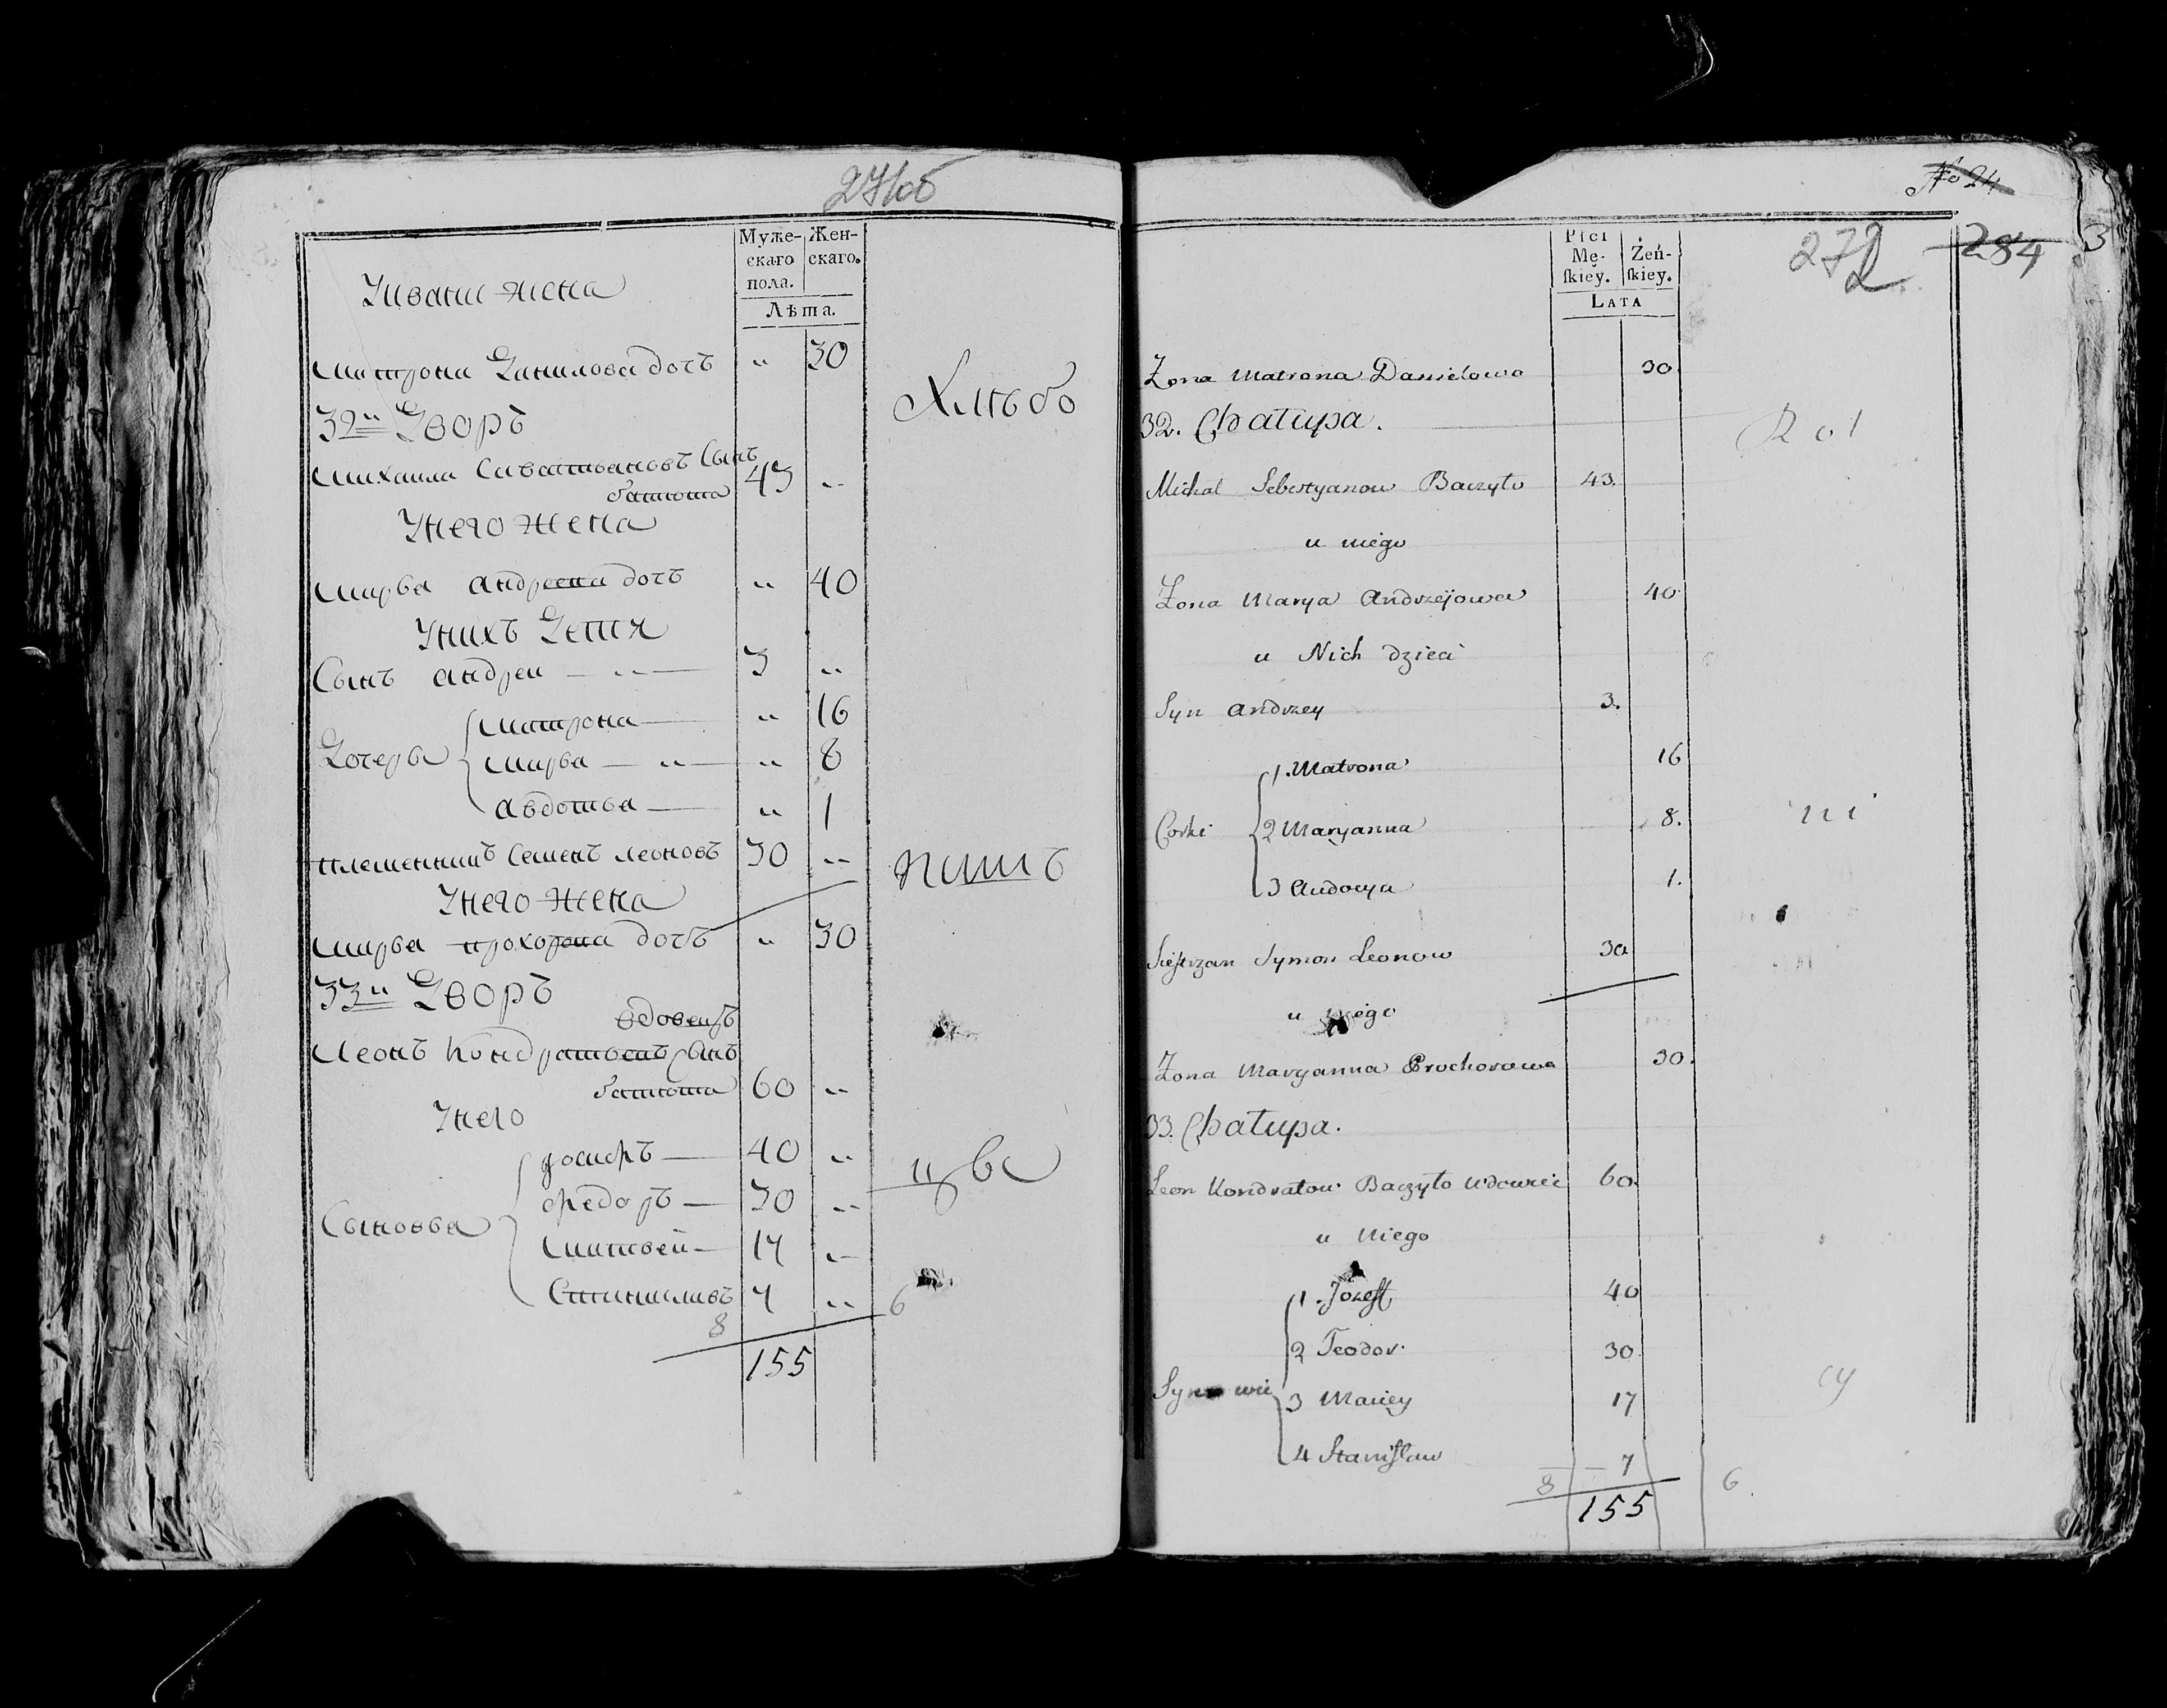 271об
Муже-
скаго
пола.
Жен-
скаго.
Лѣта.
Уивана жена
матрона Данилова дочь " 30
32й Дворъ
михаила Сивастьановъ Сынъ
батюта 43 "
Унего жена
марьа андреева дочь " 40
Унихъ Дети
Сынъ андреи — " — 3 "
Дочерьи
матрона — " 16
марьа — " — " 8
авдотьа — " 1
племенникъ Семенъ леоновъ 30 "
Унего жена
марьа прохорова дочь " 30
33й Дворъ
вдовецъ
Леонъ Кондратьевъ Сынъ
батюта 60 "
Унего
Сыновьа
иосифъ — 40 "
федоръ — 30 "
матвей — 17 "
Станиславъ 7 " 6
8
155
Хлѣбо
паш
цы
No 24
272
284
3
Płci
Mę-
ſkiey.
Żeń-
ſkiey.
Lata
Zona Matrona Danielowa 30.
32. Chałupa.
Michał Sebestyanow Baczyło 43.
u niego
Zona Marya Andrzejowa 40.
u Nich dzieci
Syn Andrzey 3.
Corki
1. Matrona 16
2 Maryanna 8.
3 Audocya 1.
Siestrzan Symon Leonow 30
u niego
Zona Maryanna Prochorowa 30.
33. Chałupa.
Leon Kondratow Baczyło wdowiec 60.
u Niego
Synowie
1. Jozeff 40
2 Teodor. 30.
3 Maciey 17
4 Stanisław 7
8 6.
155
Rol
ni
cy